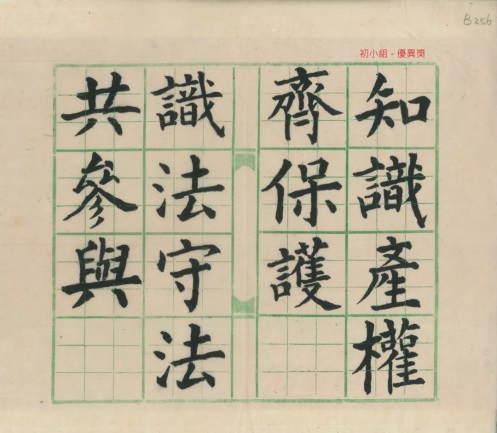 B256
初小組 - 優異獎
知識產權
齊保護
識法守法
共參與